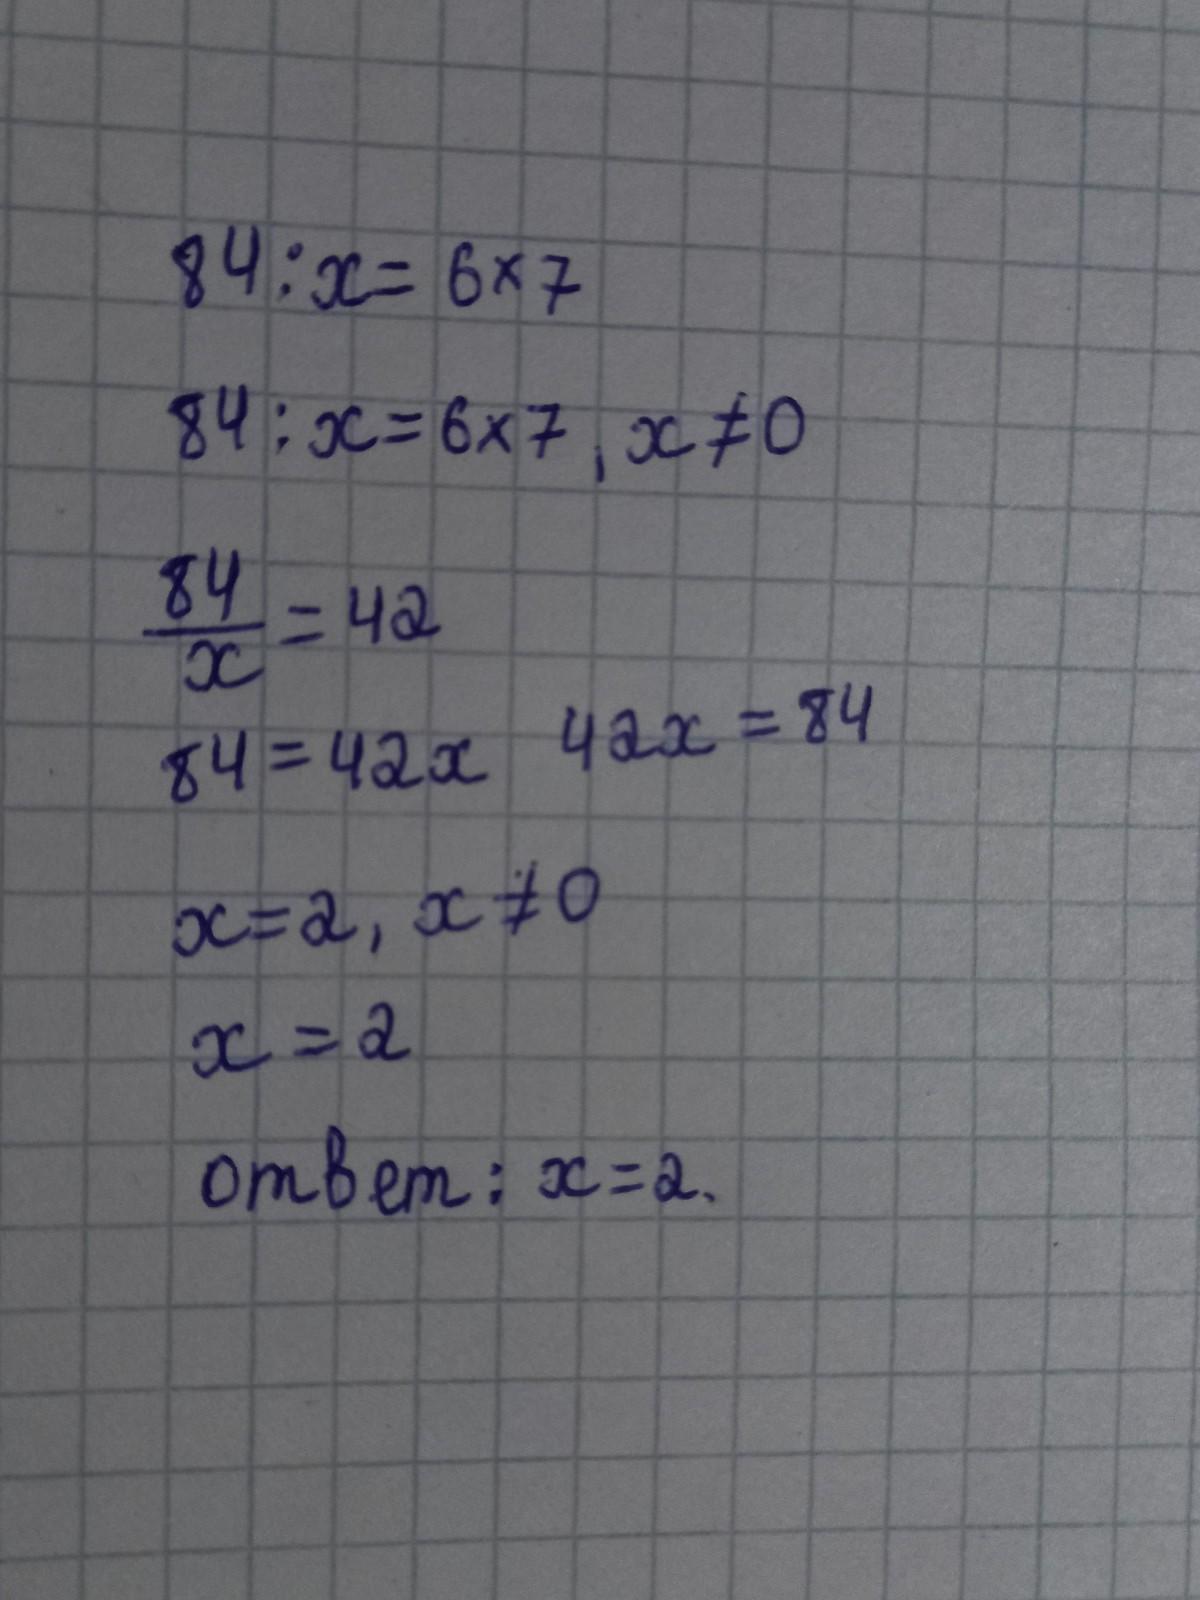 84 : x = 6 × 7
84 : x = 6 × 7, x ≠ 0
84/x = 42
84 = 42x 42x = 84
x = 2, x ≠ 0
x = 2
ответ: x = 2.